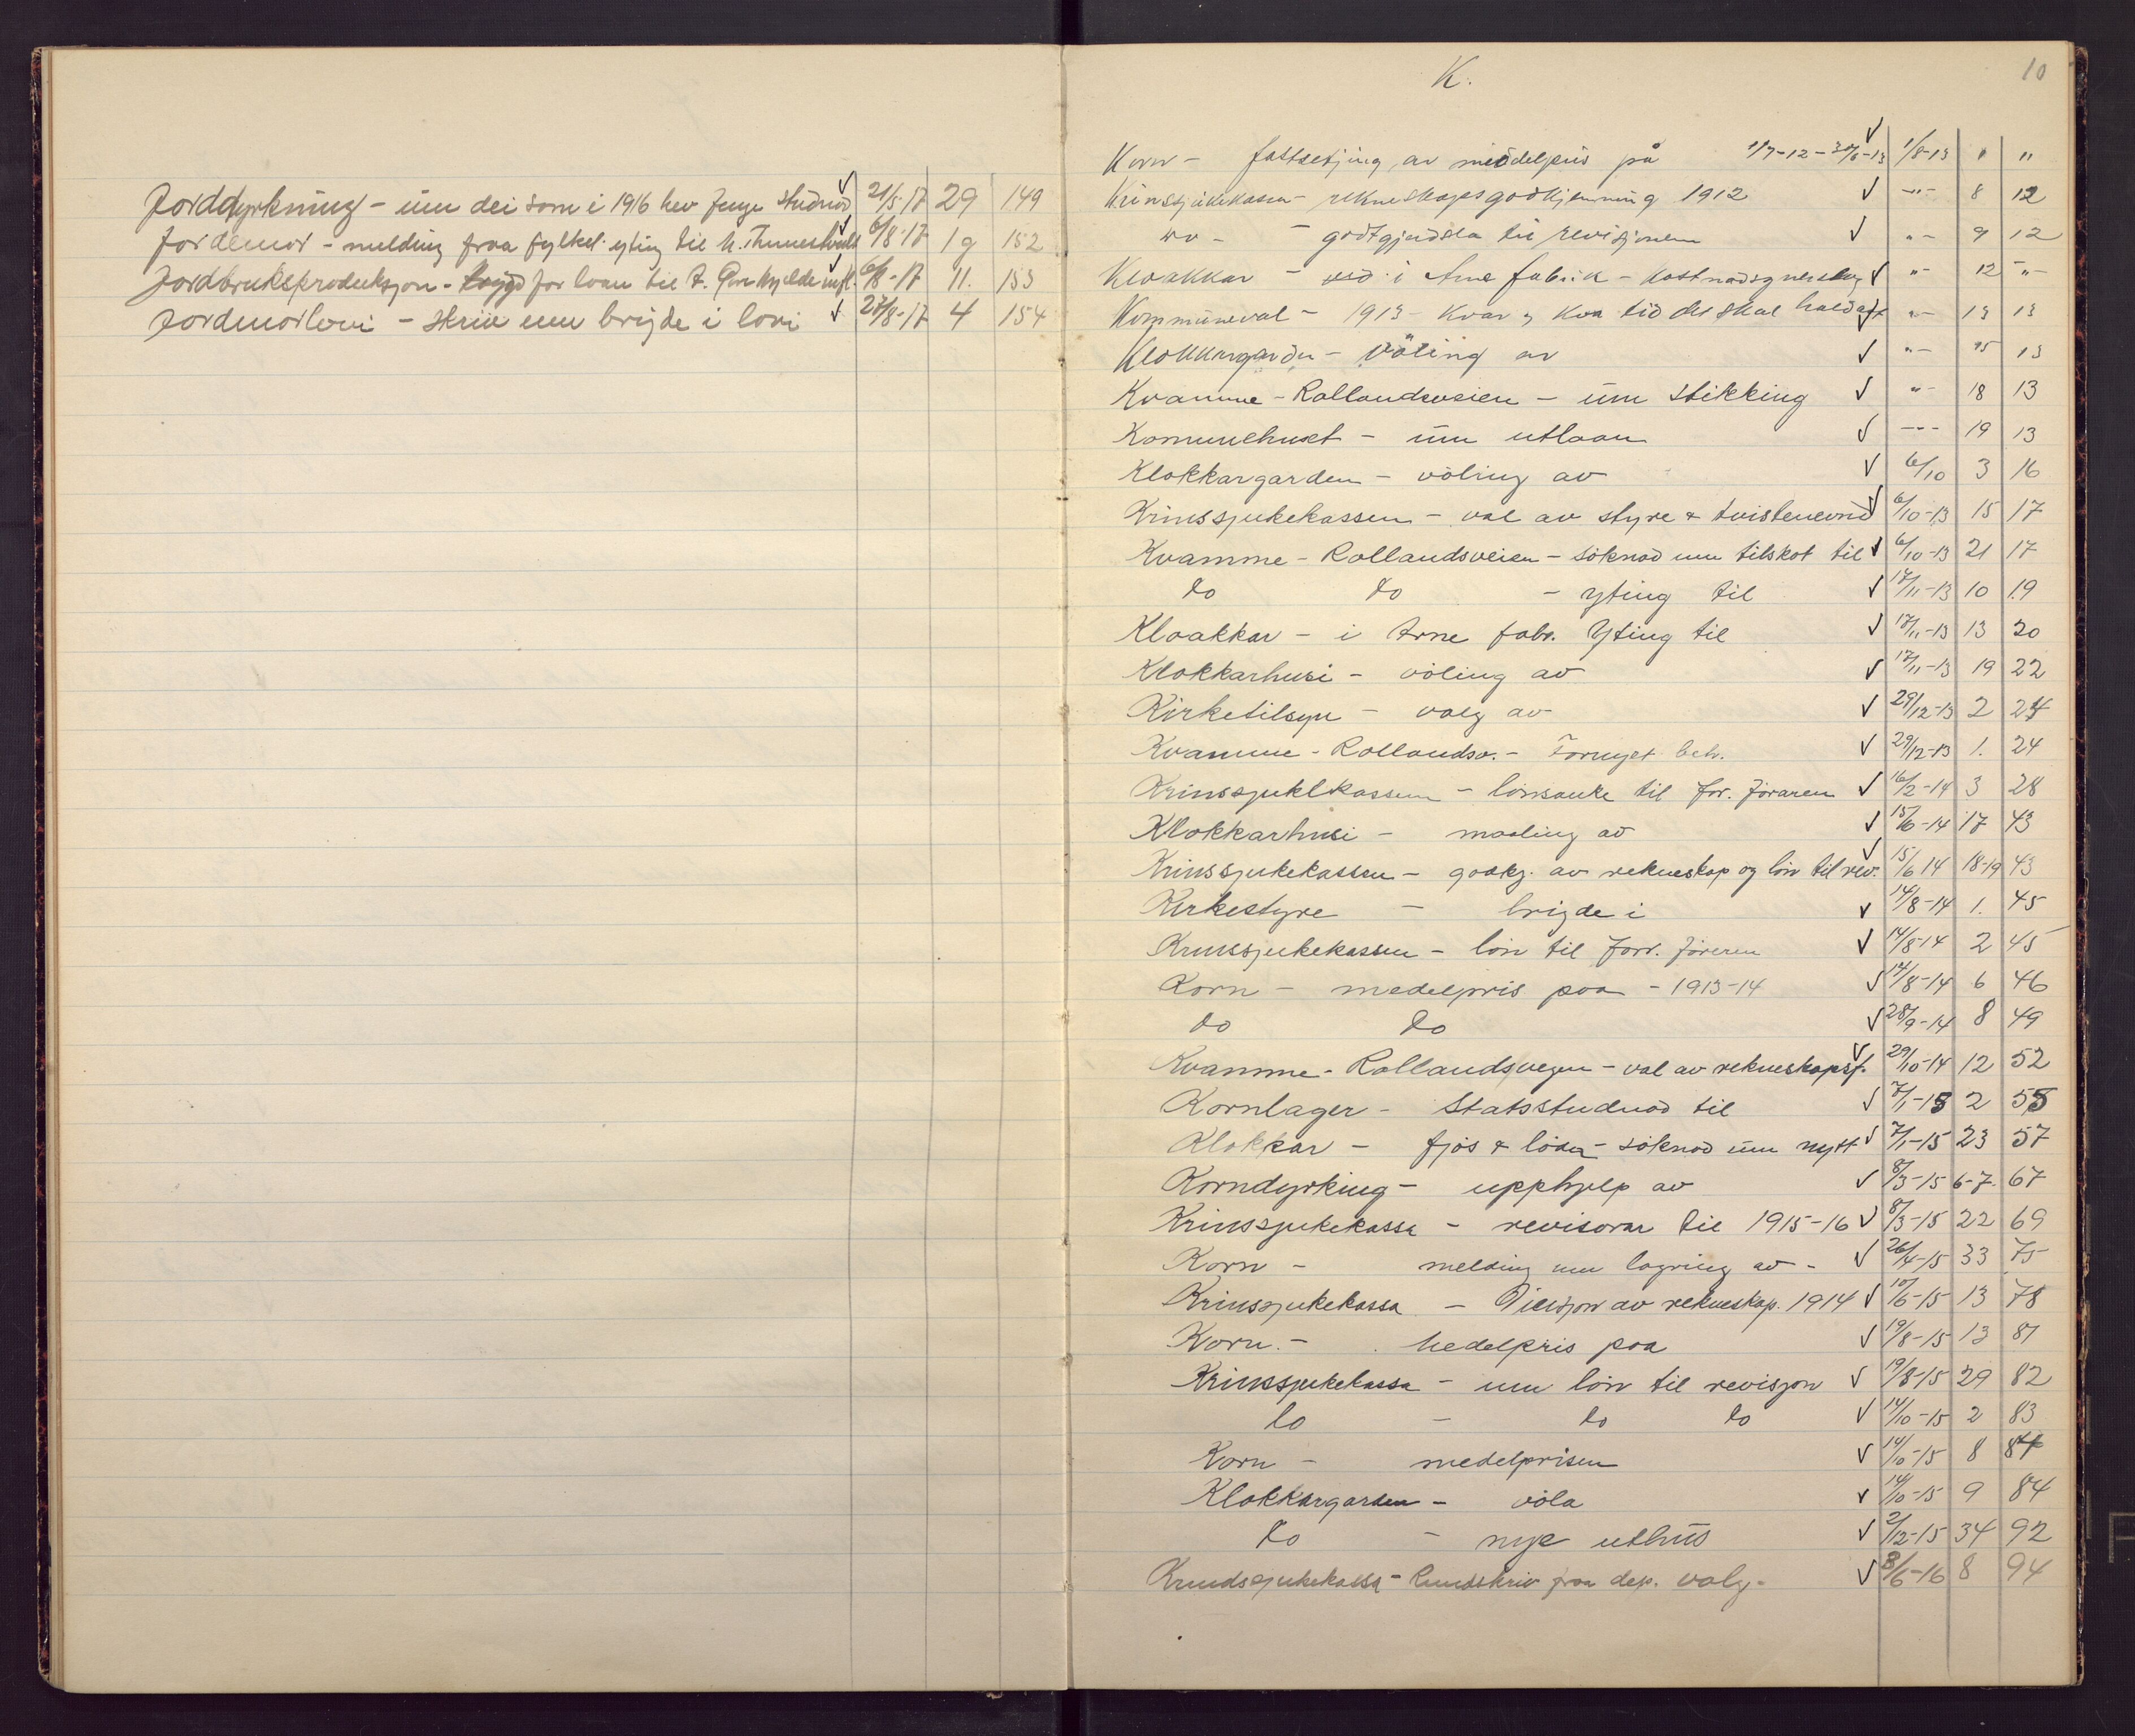 Jorddyrkning - um dei som i 1916 hev fenge studnad ✓ 21/5-17 29 149
Jordmor - melding fraa fylket. yting til ✓ 6/8-17 19 152
Jordbruksproduksjon - for loan til ✓ 6/8-17 11. 153
Jordmorlovi - skriv um brigde i lovi ✓ 27/8-17 4 154
10
K.
Korn - fastsetjing av middelpris på 1/7-12-30/6-13 ✓ 1/8-13 " "
Krinssjukekasen - rekneskapsgodkjenning 1912 ✓ -"- 8 12
do - - godtgjerdsla til revisjonen ✓ "- 9 12
Kloakkar - ved i Arne fabrik - kostnadsyverslag ✓ "- 12 -"-
Kommuneval - 1913 - kvar og kva tid det skal haldast ✓ "- 13 13
Klokkargarden - völing av ✓ "- 15 13
Kvamme-Rollandsveien - um stikking ✓ "- 18 13
Komunehuset - um utlaan ✓ -"- 19 13
Klokkargarden - völing av ✓ 6/10 3 16
Krinssjukekassen - val av styre & tvistenevnd ✓ 6/10-13 15 17
Kvamme-Rollandsveien - söknad um tilskot til ✓ 6/10-13 21 17
do do - yting til ✓ 17/11-13 10 19
Kloakkar - i Arne fabr. Yting til ✓ 17/11-13 13 20
Klokkarhusi - völing av ✓ 17/11-13 19 22
Kirketilsyn - valg av ✓ 29/12-13 2 24
Kvamme-Rollandsv. - Fornyet beh. ✓ 29/12-13 1. 24
Krinssjuklkassen - lönsauke til for. föraren ✓ 16/2-14 3 28
Klokkarhusi - maaling av ✓ 15/6-14 17 43
Krinssjukekassen - godkj. av rekneskap og lön til rev. ✓ 15/6 14 18-19 43
Kirkestyre - brigde i ✓ 14/8-14 1. 45
Krinssjukekassen - lön til forr. föreren ✓ 14/8-14 2 45
Korn - medelpris paa - 1913-14 ✓ 14/8-14 6 46
do do ✓ 28/9-14 8 49
Kvamme-Rollandsvegen - val av rekneskapsf. ✓ 29/10-14 12 52
Kornlager - Statsstudnad til ✓ 7/1-15 2 55
Klokkar - fjös & löda - söknad um nytt ✓ 7/1-15 23 57
Korndyrking - upphjelp av ✓ 8/3-15 6-7. 67
Krinssjukekassa - revisorar til 1915-16 ✓ 8/3-15 22 69
Korn - melding um lagring av - ✓ 26/4-15 33 75
Krinssjukekassa - av rekneskap. 1914 ✓ 10/6-15 13 78
Korn. - Medelpris paa ✓ 19/8-15 13 81
Krinssjukekassa - um lön til revisjon ✓ 19/8-15 29 82
do - do do ✓ 14/10-15 2 83
Korn - medelprisen ✓ 14/10-15 8 84
Klokkargarden - völa ✓ 14/10-15 9 84
do - nye uthus ✓ 2/12-15 34 92
Krindssjukekassa - Rundskriv fraa dep. valg. ✓ 8/6-16 8 94